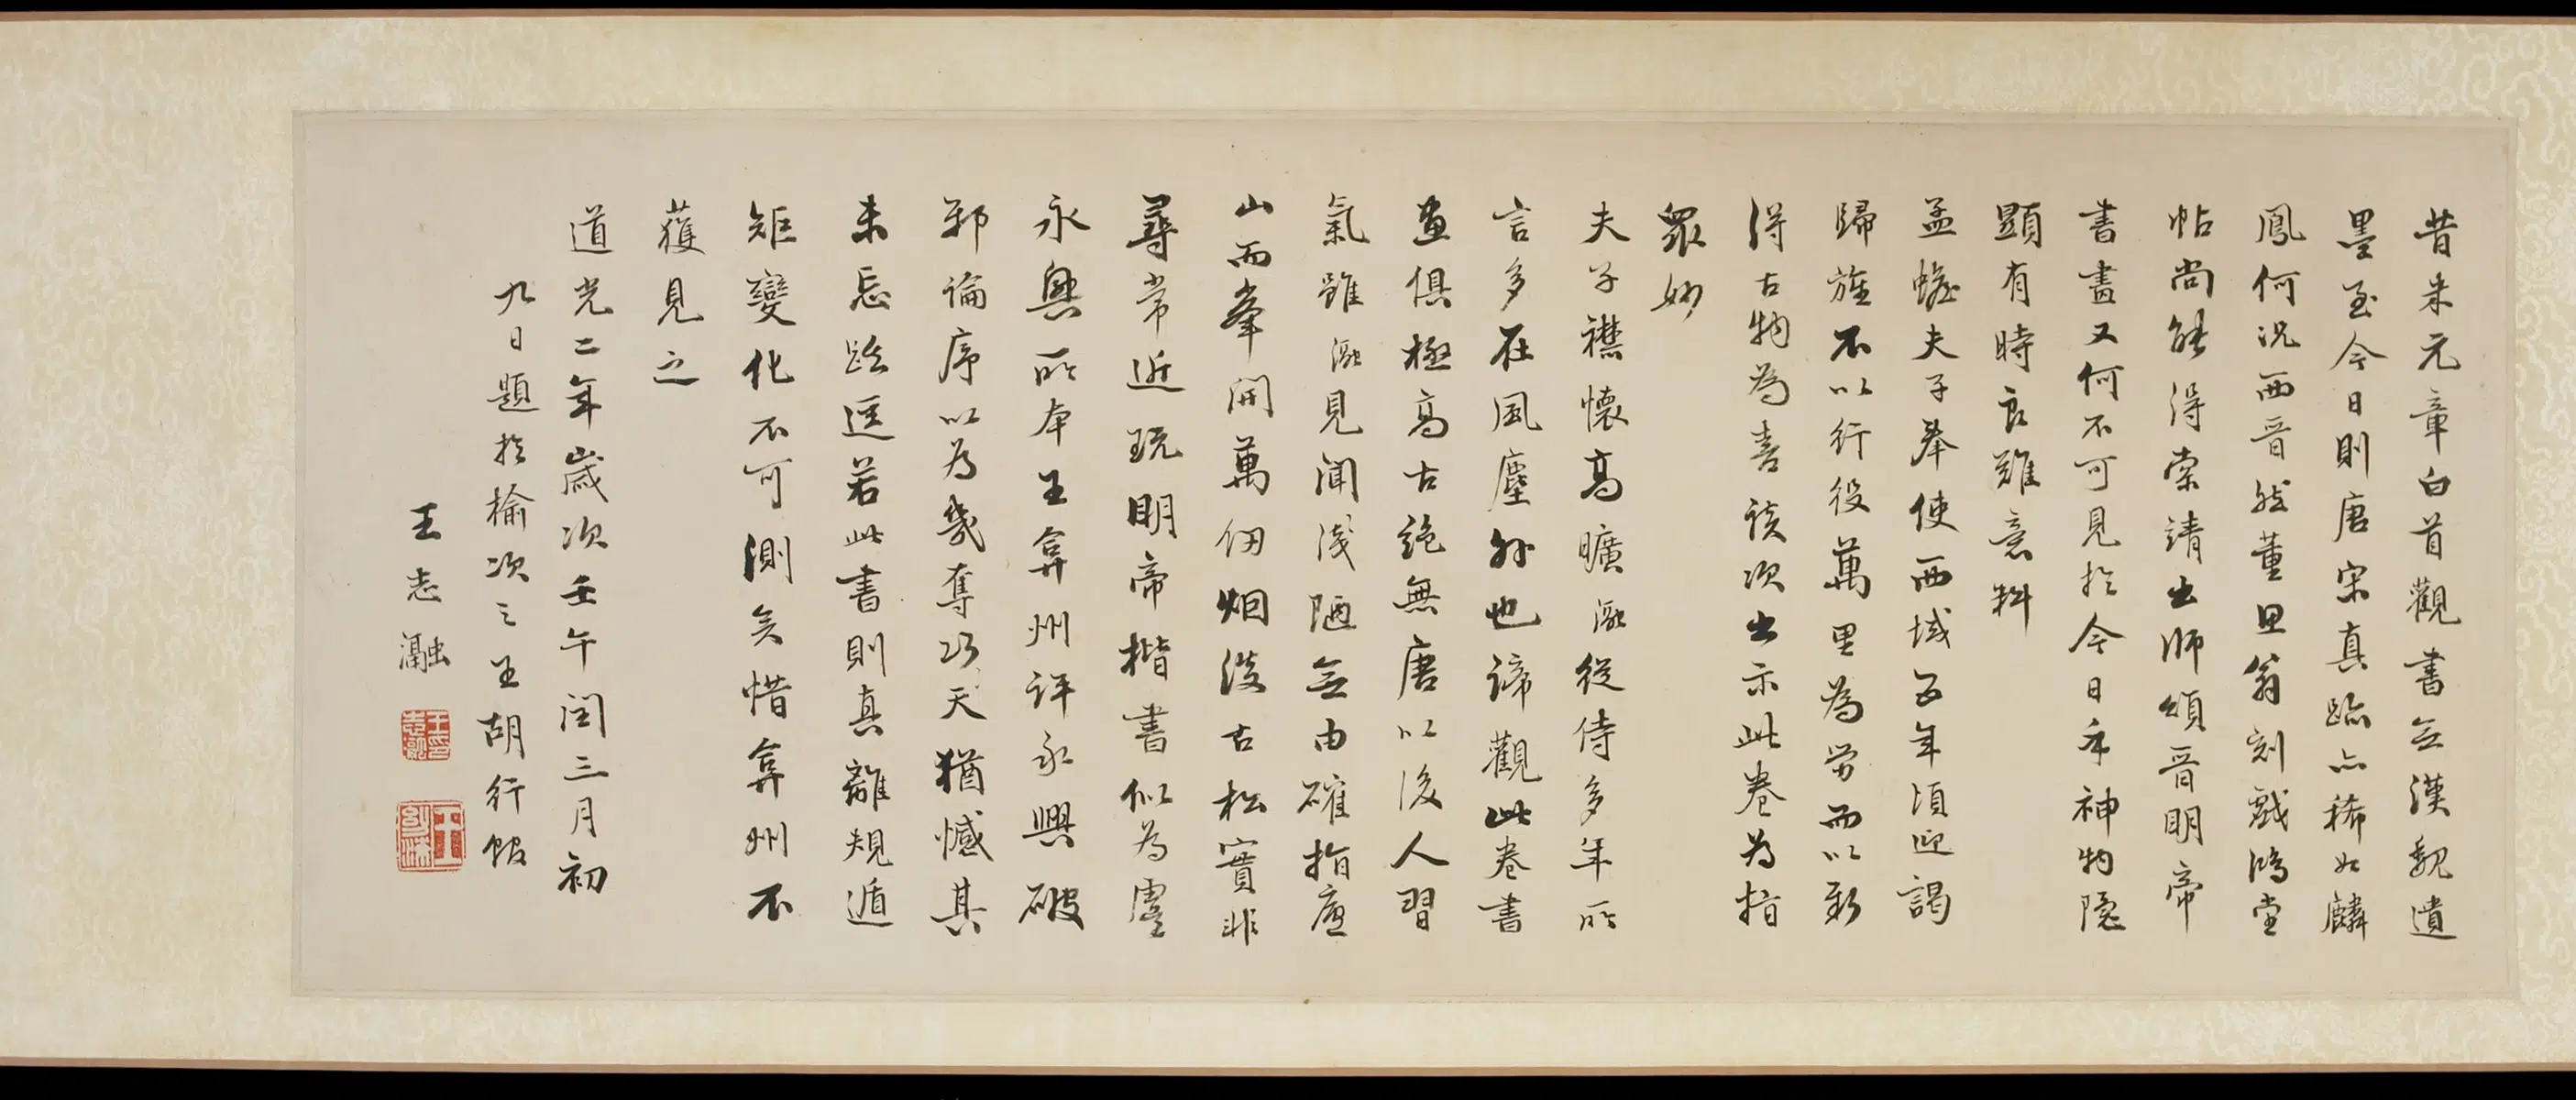 昔米元章白首觀書無漢魏遺
墨至今日則唐宋真跡亦稀如麟
鳳何況西晉然董思翁刻戲鴻堂
帖尚能得索靖出師頌晉明帝
書畫又何不可見於今日乎神物隱
顯有時良難意料
孟蟾夫子奉使西域五年頃迎謁
歸旌不以行役萬里為勞而以新
得古物為喜談次出示此卷為指
眾妙
夫子襟懷高曠瀜從侍多年所
言多在風塵外也諦觀此卷書
畫俱極高古絕無唐以後人習
氣雖瀜見聞淺陋無由確指廬
山而峯開萬仞烟沒古松實非
尋常近玩明帝楷書似為虞
永興所本王弇州評永興破
邪論序以為幾奪巧天猶憾其
未忘 逕若此書則真離規遁
矩變化不可測矣惜弇州不
獲見之
道光二年歲次壬午閏三月初
九日題於榆次之王胡行館
王志瀜